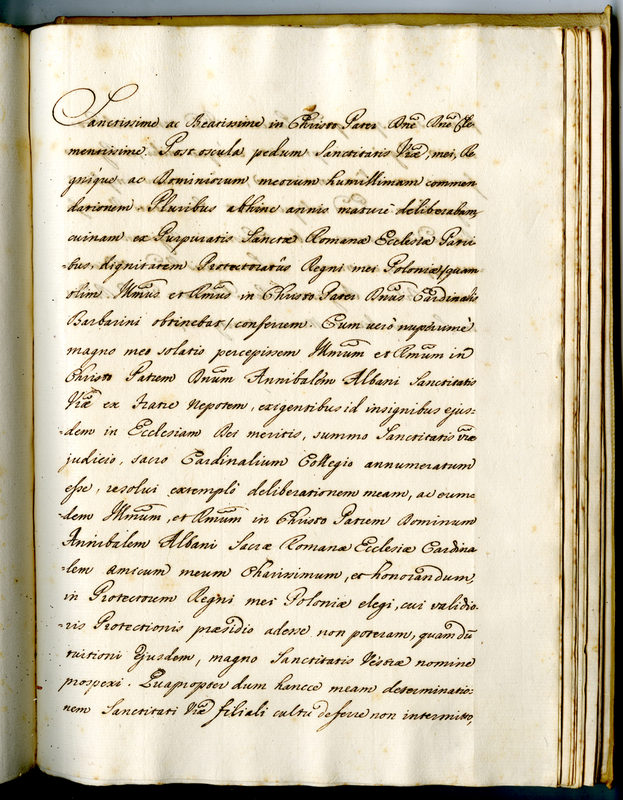 Sanctissime ac Beatissime in Christo Pater Dne Dne Cle
mentissime. Post oscula pedum Sanctitatis Vrae, mei, Re
gnique ac Dominiorum meorum humillimam commen
dationem. Pluribus abhinc annis maturè deliberabam,
cuinam ex Purpuratis Sanctæ Romanæ Ecclesiæ Patri
-bus, dignitatem Protectoratûs Regni mei Poloniæ /quam
olim Illmus et Rmus in Christo Pater Dnus Cardinalis
Barbarini obtinebat/ conferrem. Cum verò nuperrimè
magno meo solatio percepissem Illmum et Rmum in
Christo Patrem Dnum Annibalem Albani Sanctitatis
Vræ ex Fratre Nepotem, exigentibus id insignibus ejus=
dem in Ecclesiam Dei meritis, summo Sanctitatis vræ
judicio, sacro Cardinalium Collegio annumeratum
esse, resolvi extemplò deliberationem meam, ac eum=
dem Illmum, et Rmum in Christo Patrem Dominum
Annibalem Albani Sacræ Romanæ Ecclesiæ Cardina
-lem amicum meum Charissimum, et honorandum,
in Protectorem Regni mei Poloniæ elegi, cui validio
-ris Protectionis præsidio adesse non poteram, quam dũ
tuitioni Ejusdem, magno Sanctitatis Vestræ nomine
prospexi. Quapropter dum hancce meam determinatio=
nem Sanctitati Vræ filiali cultu deferre non intermitto,